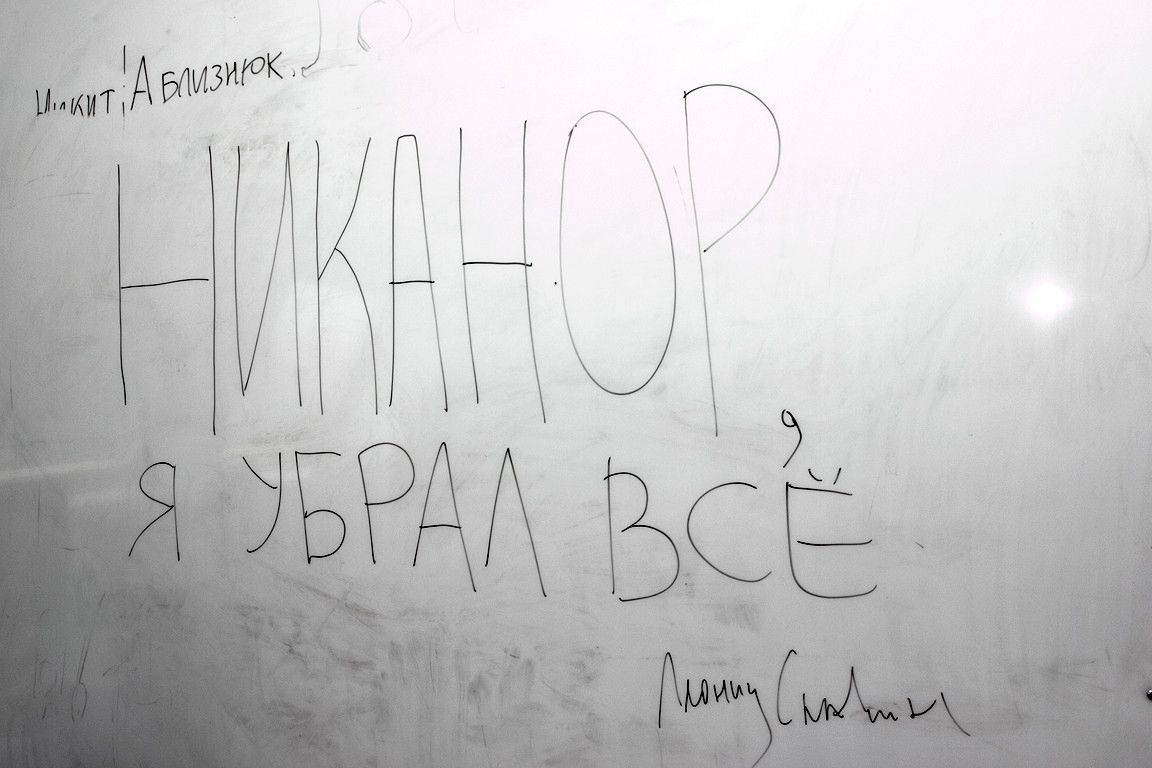 НИКИТА БЛИЗНЮК.
НИКАНОР
Я УБРАЛ ВСЁ